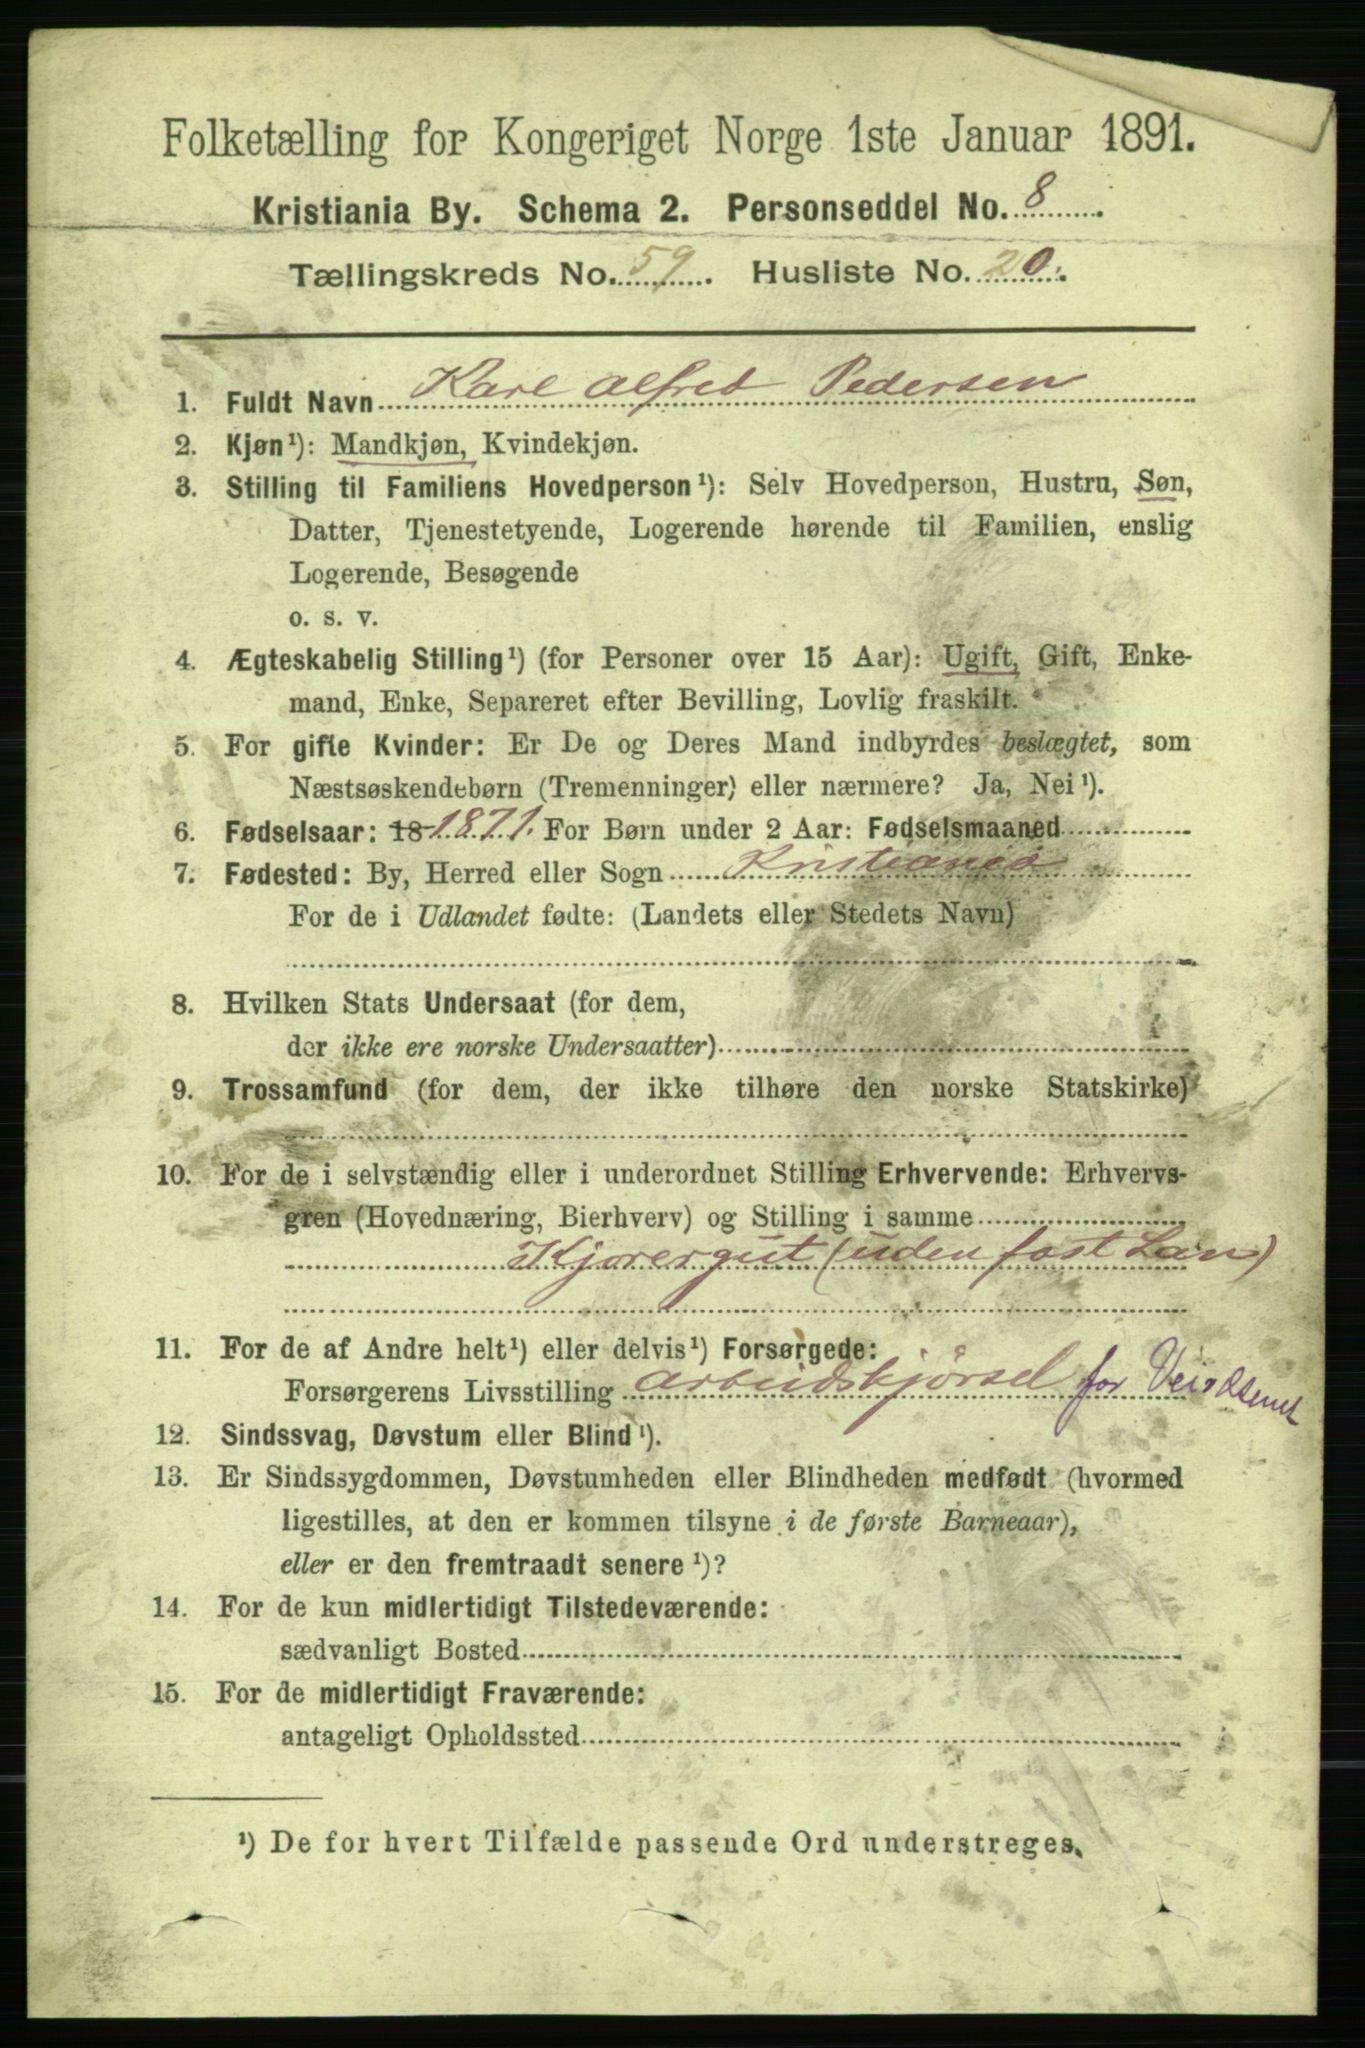 Folketælling for Kongeriget Norge 1ste Januar 1891.
Kristiania By. Schema 2. Personseddel No. 8
Tællingskreds No. 59. Husliste No. 20.
1. Fuldt Navn Karl Alfred Pedersen
2. Kjøn¹): Mandkjøn, Kvindekjøn.
3. Stilling til Familiens Hovedperson¹): Selv Hovedperson, Hustru, Søn,
Datter, Tjenestetyende, Logerende hørende til Familien, enslig
Logerende, Besøgende
o. s. v.
4. Ægteskabelig Stilling¹) (for Personer over 15 Aar): Ugift, Gift, Enke-
mand, Enke, Separeret efter Bevilling, Lovlig fraskilt.
5. For gifte Kvinder: Er De og Deres Mand indbyrdes beslægtet, som
Næstsøskendebørn (Tremenninger) eller nærmere? Ja, Nei¹).
6. Fødselsaar: 18 1871. For Børn under 2 Aar: Fødselsmaaned
7. Fødested: By, Herred eller Sogn Kristiania
For de i Udlandet fødte: (Landets eller Stedets Navn)
8. Hvilken Stats Undersaat (for dem,
der ikke ere norske Undersaatter)
9. Trossamfund (for dem, der ikke tilhøre den norske Statskirke)
10. For de i selvstændig eller i underordnet Stilling Erhvervende: Erhvervs-
gren (Hovednæring, Bierhverv) og Stilling i samme
Kjørergut (uden fast Løn)
11. For de af Andre helt¹) eller delvis¹) Forsørgede:
Forsørgerens Livsstilling Arbeidskjørsel for
12. Sindssvag, Døvstum eller Blind¹).
13. Er Sindssygdommen, Døvstumheden eller Blindheden medfødt (hvormed
ligestilles, at den er kommen tilsyne i de første Barneaar),
eller er den fremtraadt senere¹)?
14. For de kun midlertidigt Tilstedeværende:
sædvanligt Bosted
15. For de midlertidigt Fraværende:
antageligt Opholdssted
¹) De for hvert Tilfælde passende Ord understreges.